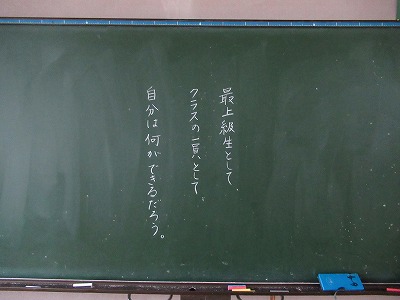 最上級生として、
クラスの一員として、
自分は何ができるだろう。